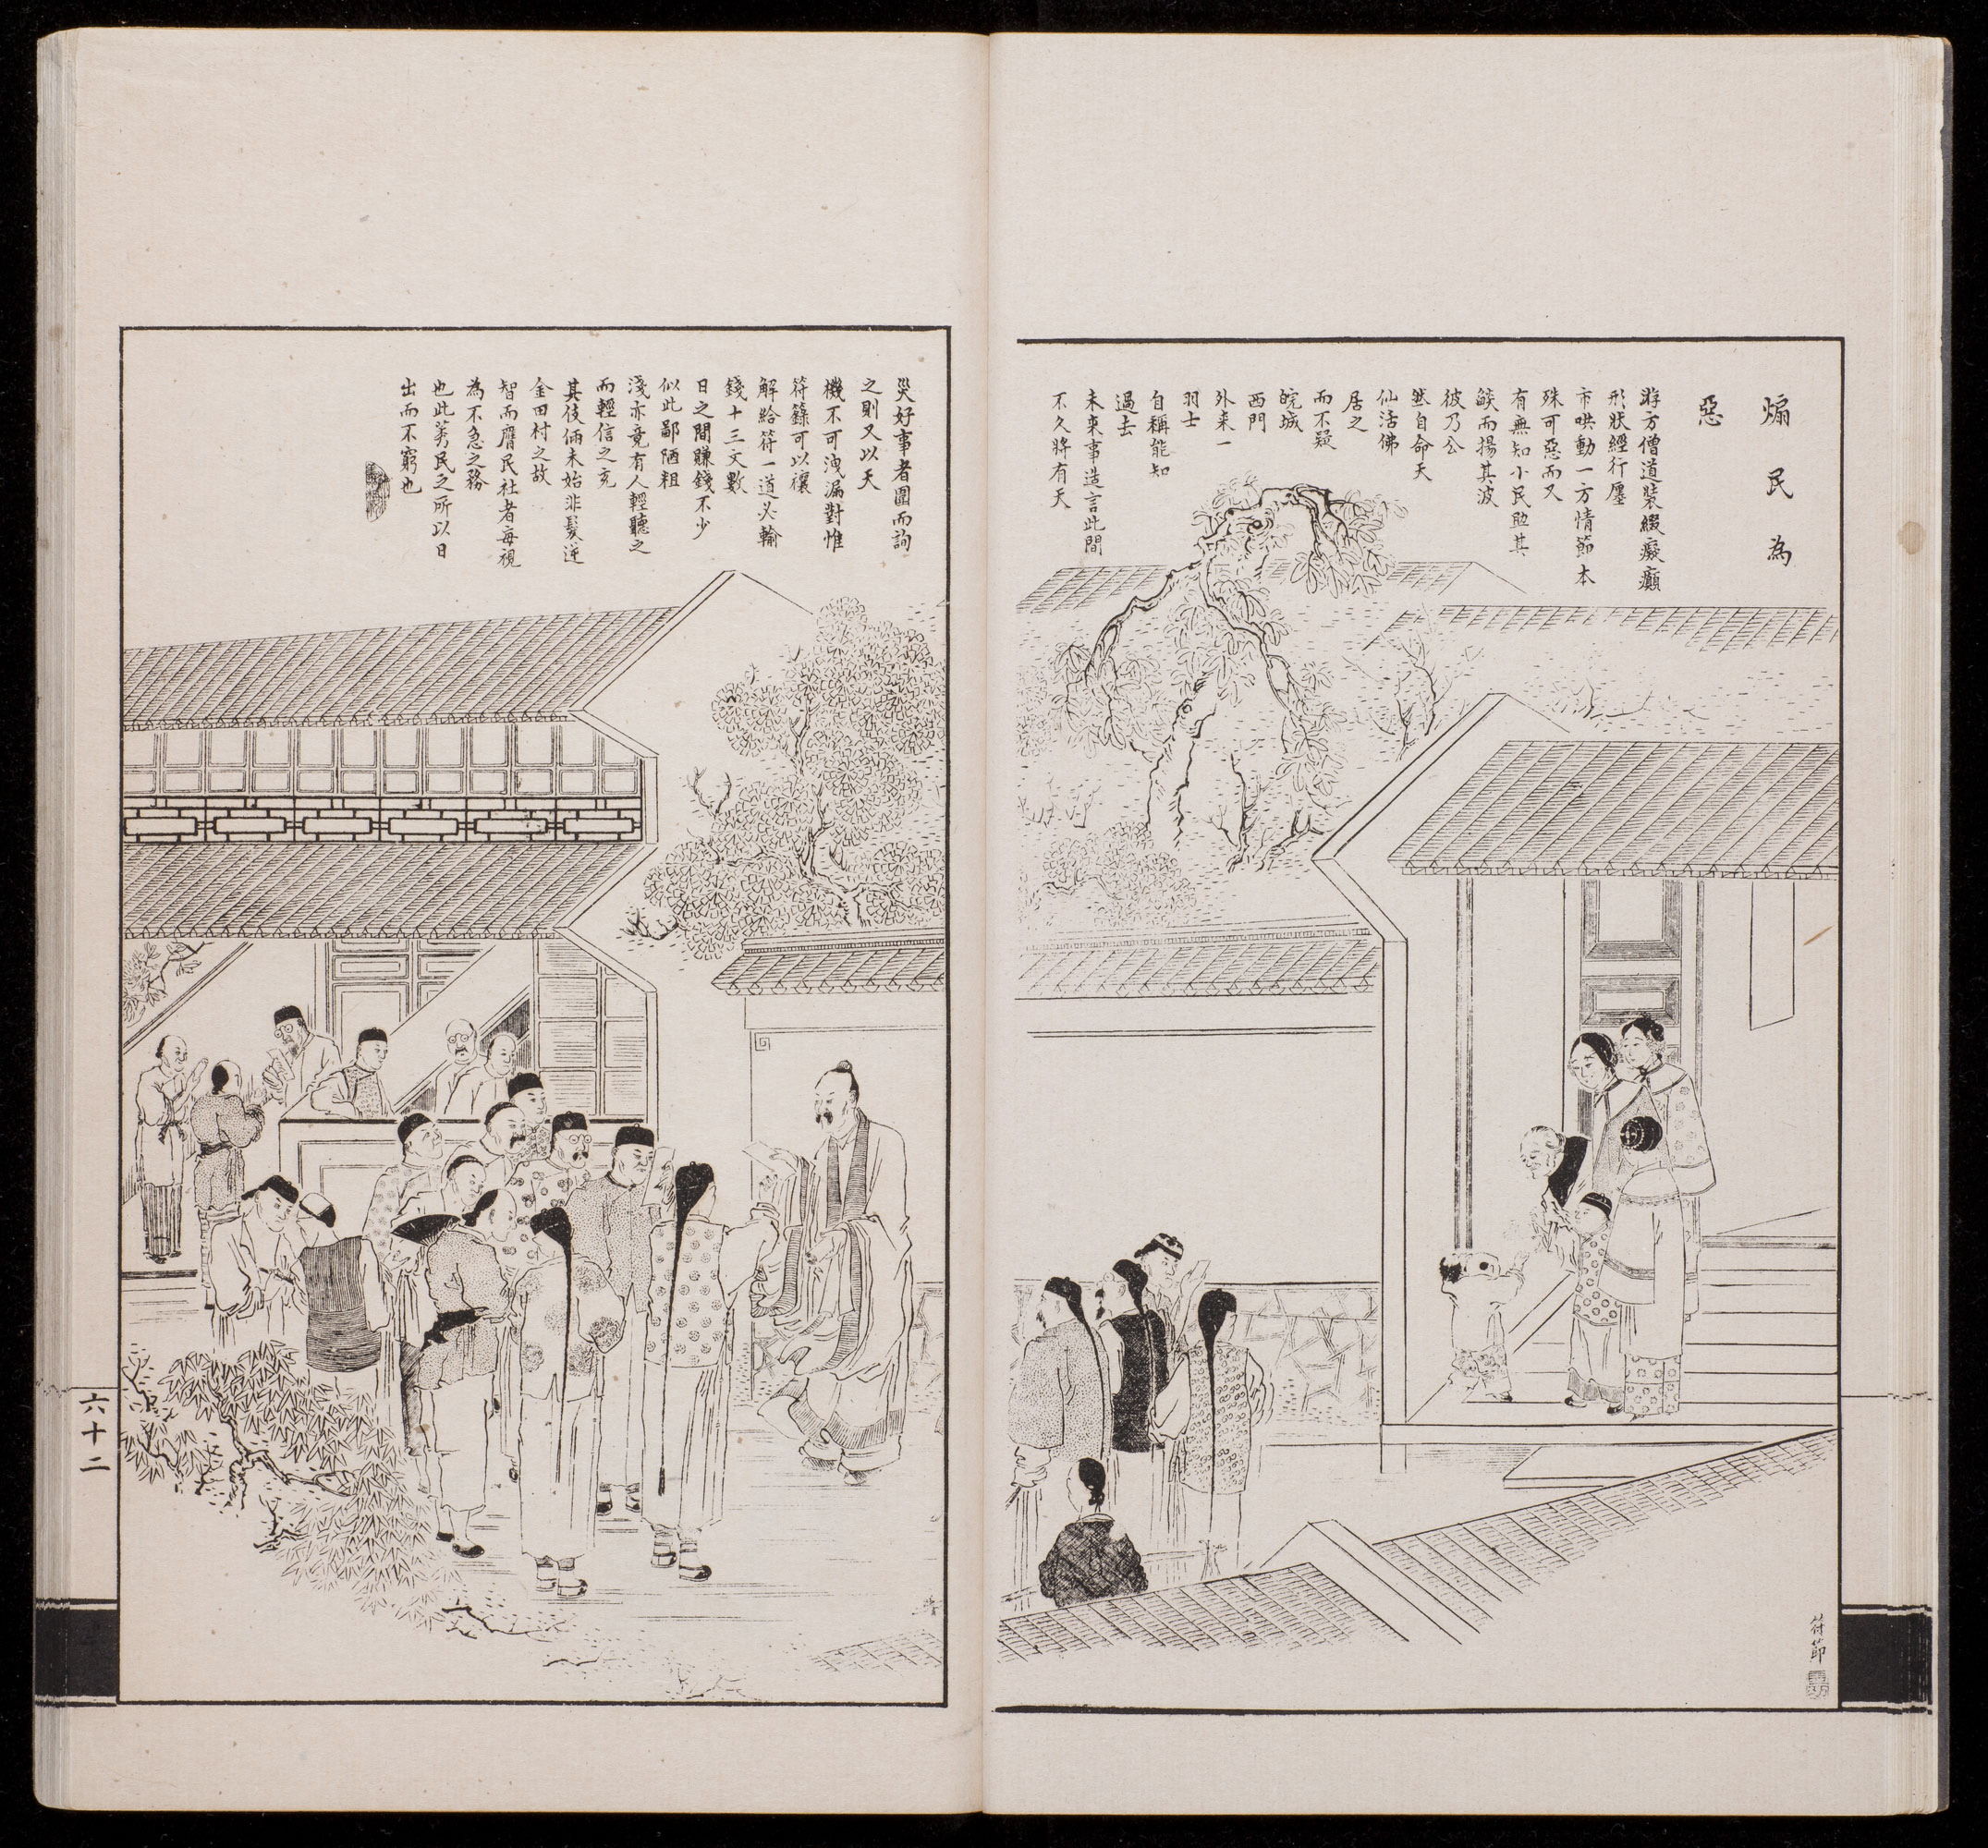 煽民為
惡
游方僧道裝綴癡癲
形狀經行廛
市哄動一方情節本
殊可惡而又
有無知小民助其
燄而揚其波
彼乃公
然自命天
仙活佛
居之
而不疑
皖城
西門
外來一
羽士
自稱能知
過去
未來事造言此間
不久將有天
災好事者圍而詢
之則又以天
機不可洩漏對惟
符籙可以禳
解給符一道必輸
錢十三文數
日之間賺錢不少
似此鄙陋粗
淺亦竟有人輕聽之
而輕信之充
其伎倆未始非髮逆
金田村之故
智而膺民社者每視
為不急之務
也此莠民之所以日
出而不窮也
符節
六十二